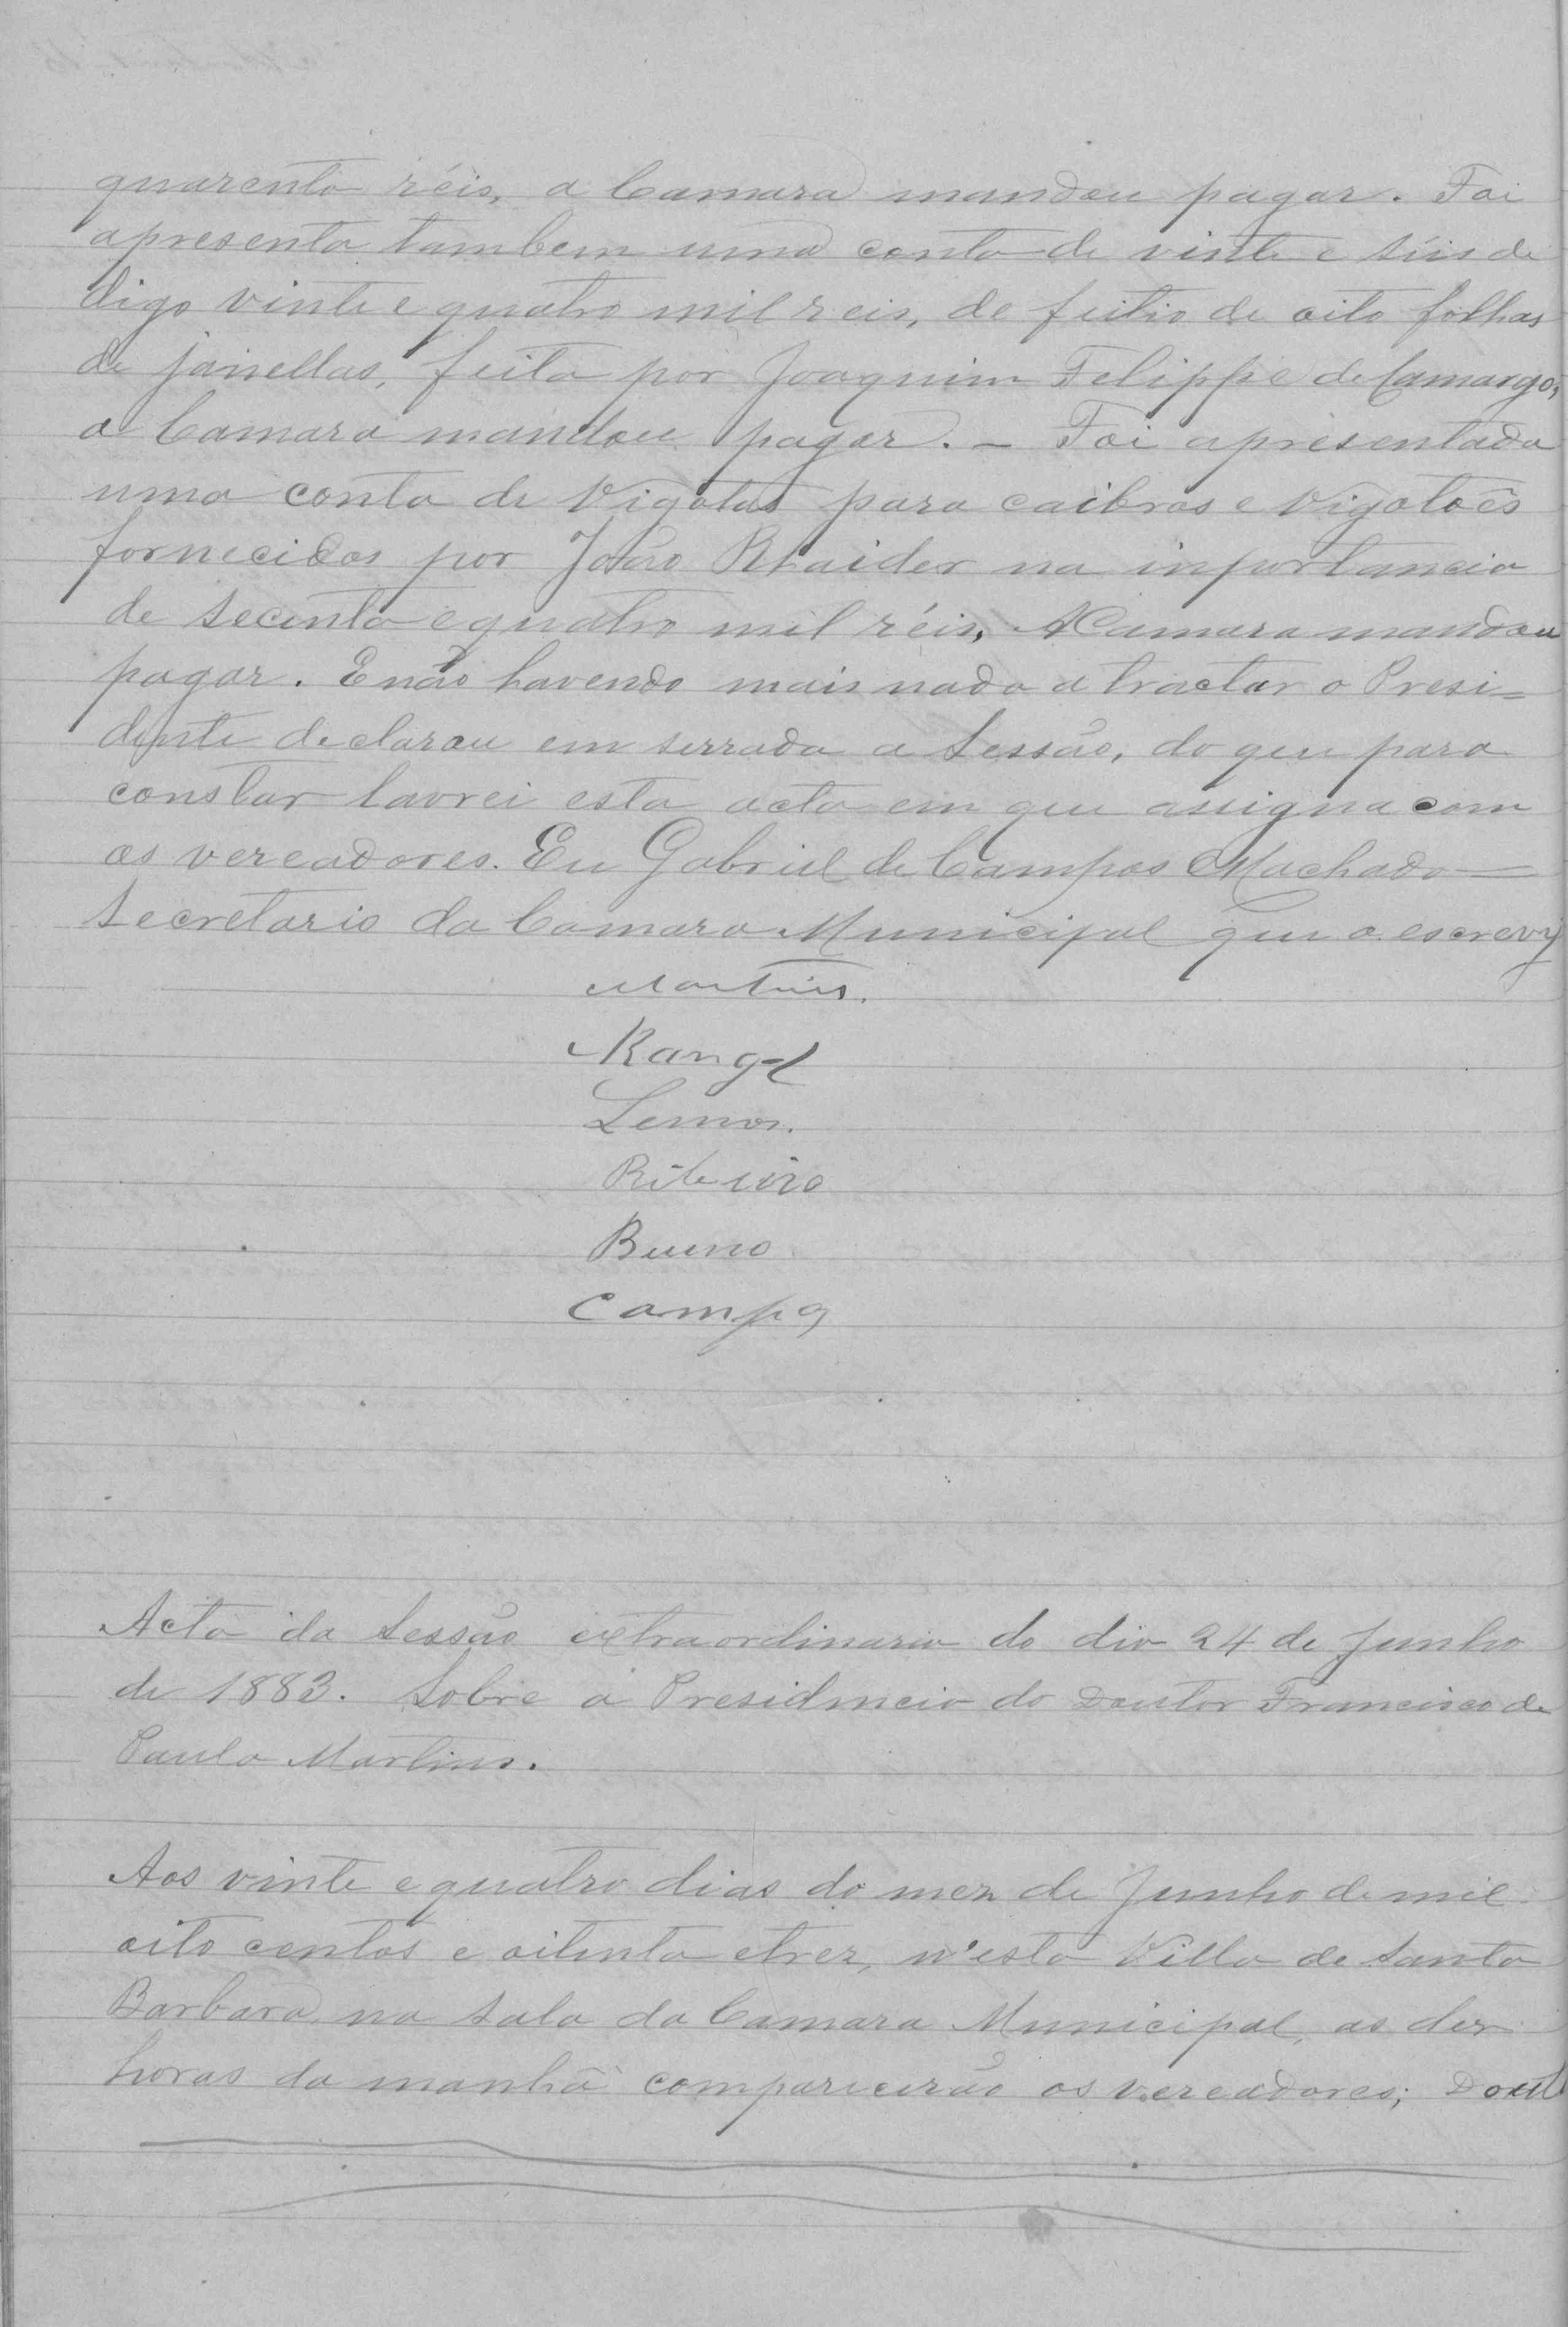 quarenta réis, a Camara mandou pagar. Foi
apresenta tambem uma conta de vinte e séis de
digo vinte e quatro mil reis, de feitio de oito folhas
de janellas, feita por Joaquim Felippe de Camargo,
a Camara mandou pagar. – Foi apresentada
uma conta de vigotas para caibros e vigotoês
fornecidos por João na inportancia
de secenta e quatro mil réis, A Camara mandou
pagar. E não havendo mais nada a tractar o Presi=
dente declarou em serrada a Sessão, do que para
constar lavrei esta acta em que assigna com
os vereadores. Eu Gabriel de Campos Machado
Secretario da Camara Municipal que o escrevy
Martins.
Rangel
Lemos.
Ribeiro
Bueno
Campos
Acta da Sessão extraordinaria do dia 24 de Junho
de 1883. Sobre a Presidencia do Doutor Francisco de
Paula Martins.
Aos vinte e quatro dias do mez de Junho de mil
oito centos e oitenta e trez, n'esta Villa de Santa
Barbara na sala da Camara Municipal, as dez
horas da manhã comparecerão os vereadores; Dout